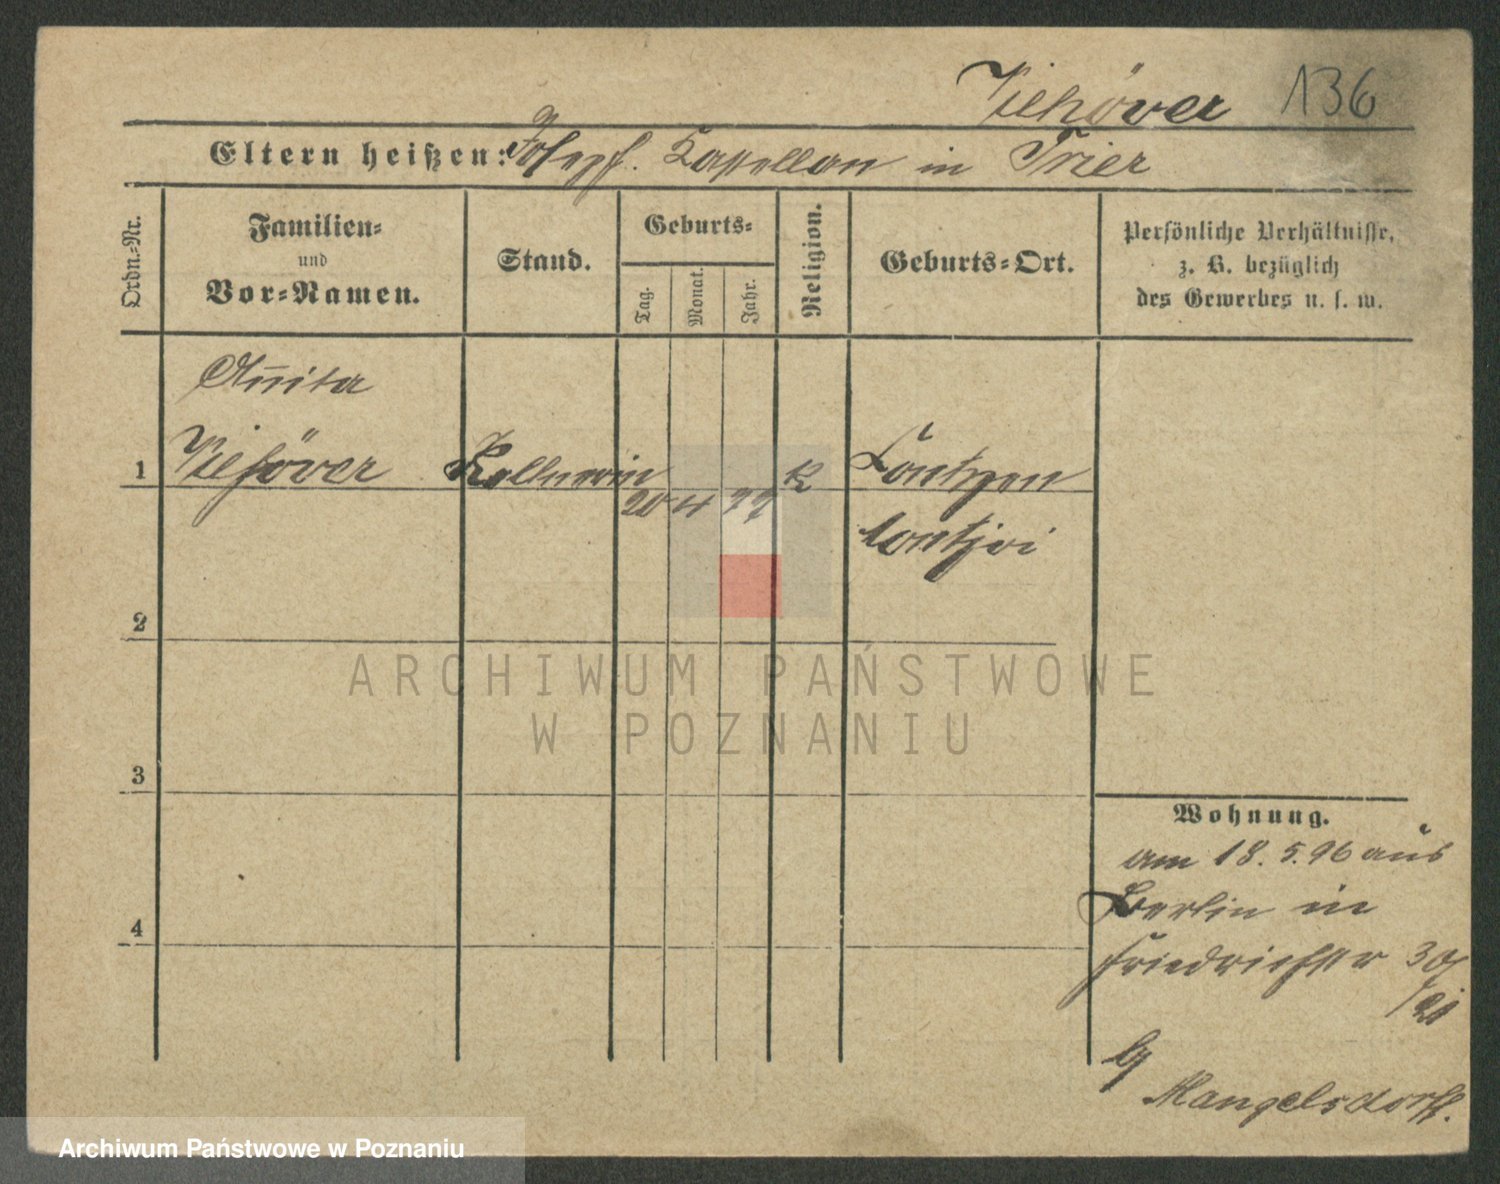 Viehöver 136
Eltern heißen: Josepf. Kapellan in Trier
Ordn.-Nr.
Familien-
und
Vor-Namen.
Stand.
Geburts-
Tag.
Monat.
Jahr.
Religion.
Geburts-Ort.
Persönliche Verhältnisse,
z. B. bezüglich
des Gewerbes u. s. w.
Anita
1 Viehöver Kellnerin K Lontzen
20 4 77
2
ARCHIWUM PAŃSTWOWE
W POZNANIU
3
Wohnung.
am 18. 5. 96 aus
Berlin in
4
Friedrichstr 30/
Mangelsdorff.
Archiwum Państwowe w Poznaniu